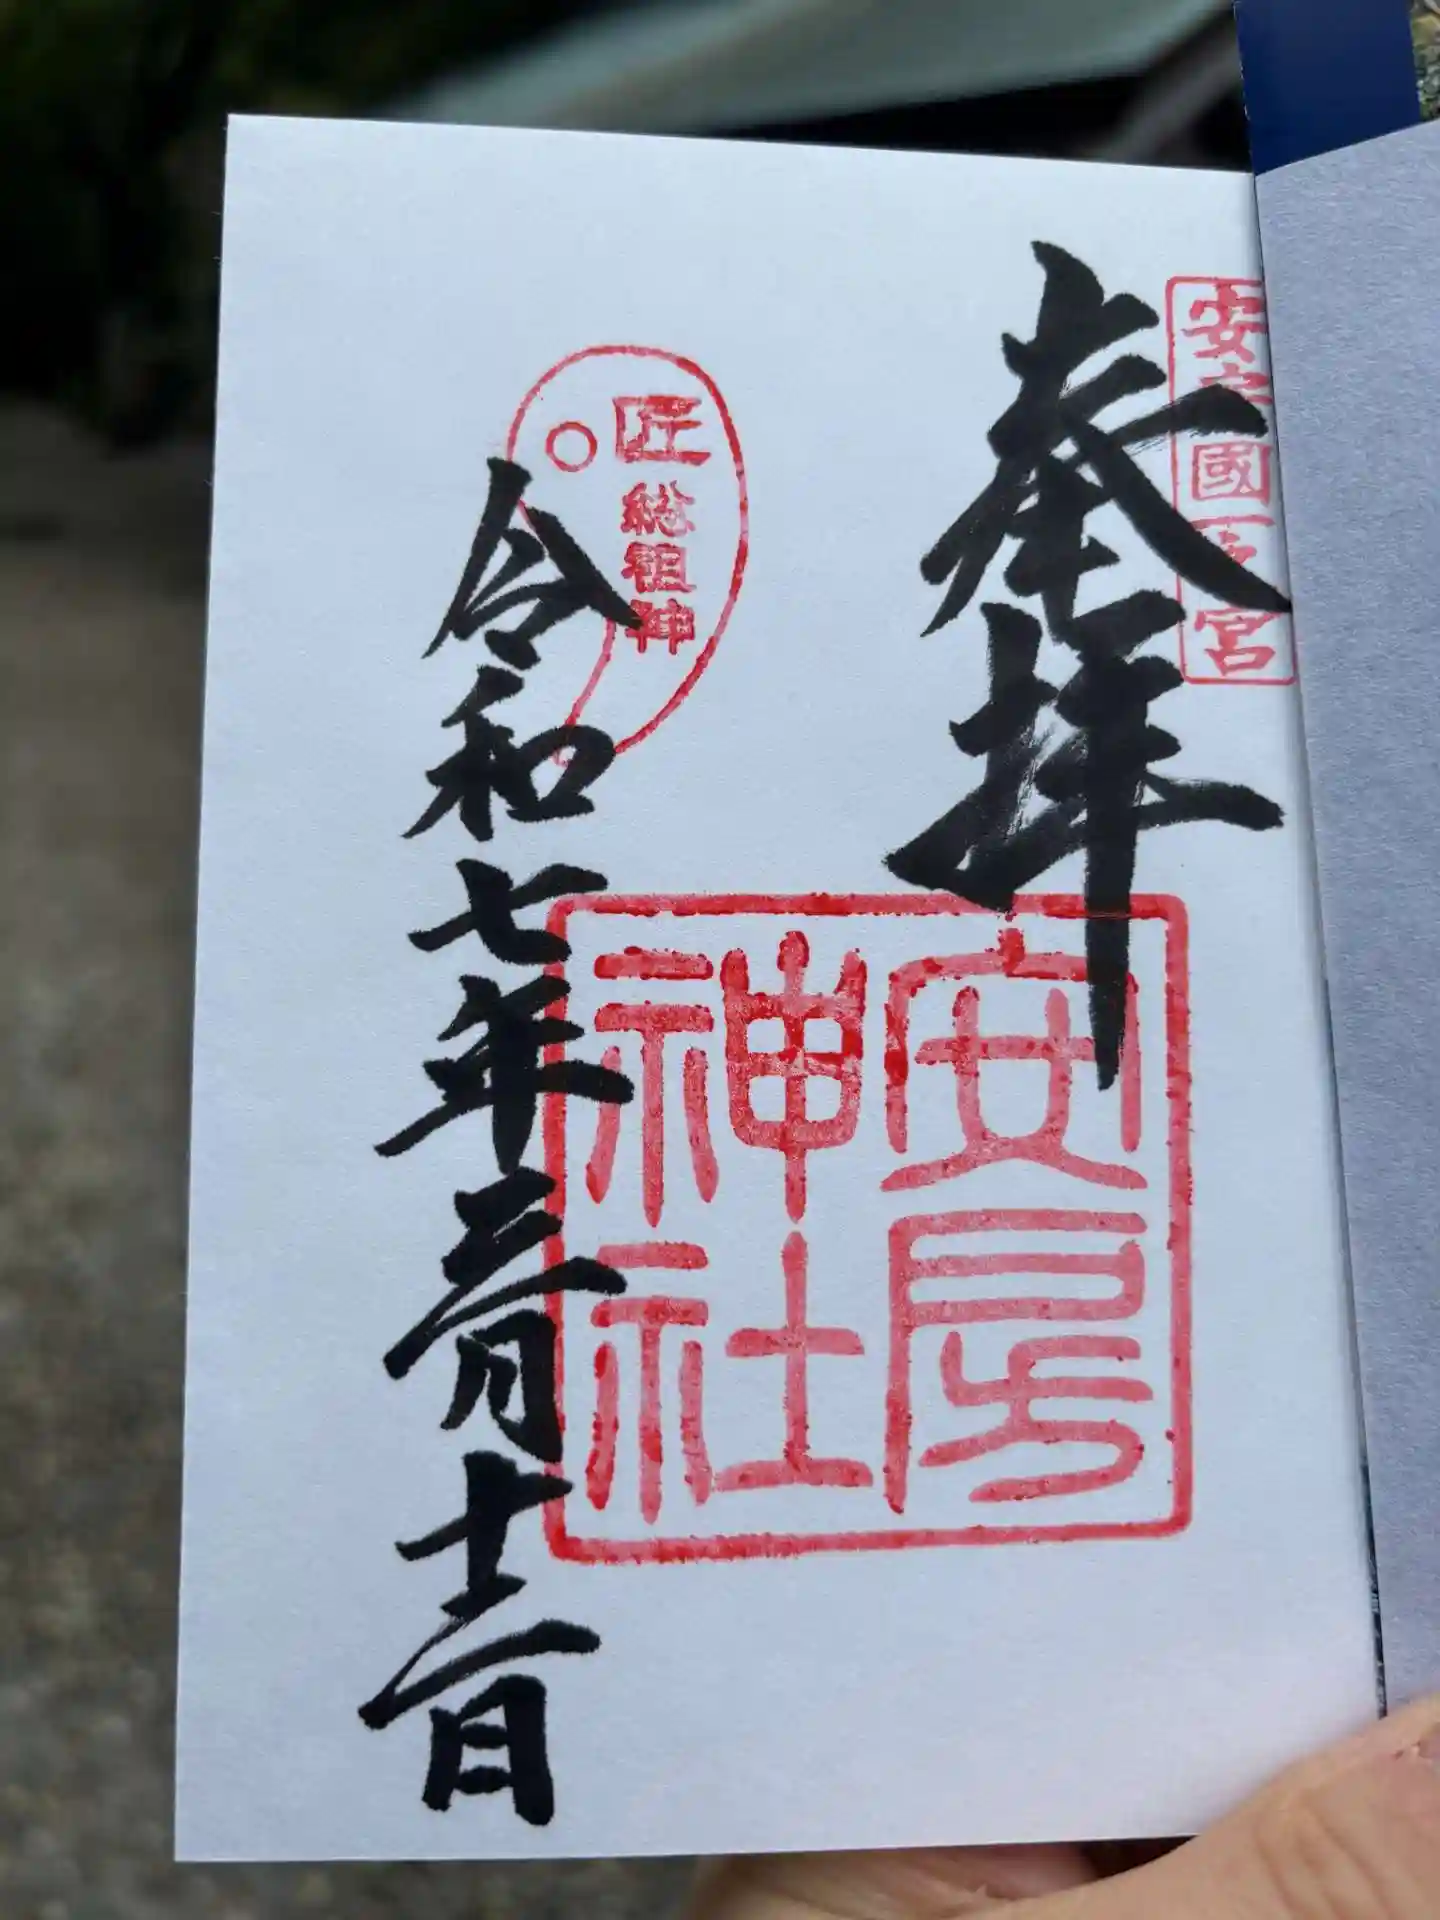 安房國一之宮
奉拝
安房
神社
匠総祖神
令和七年三月十二日